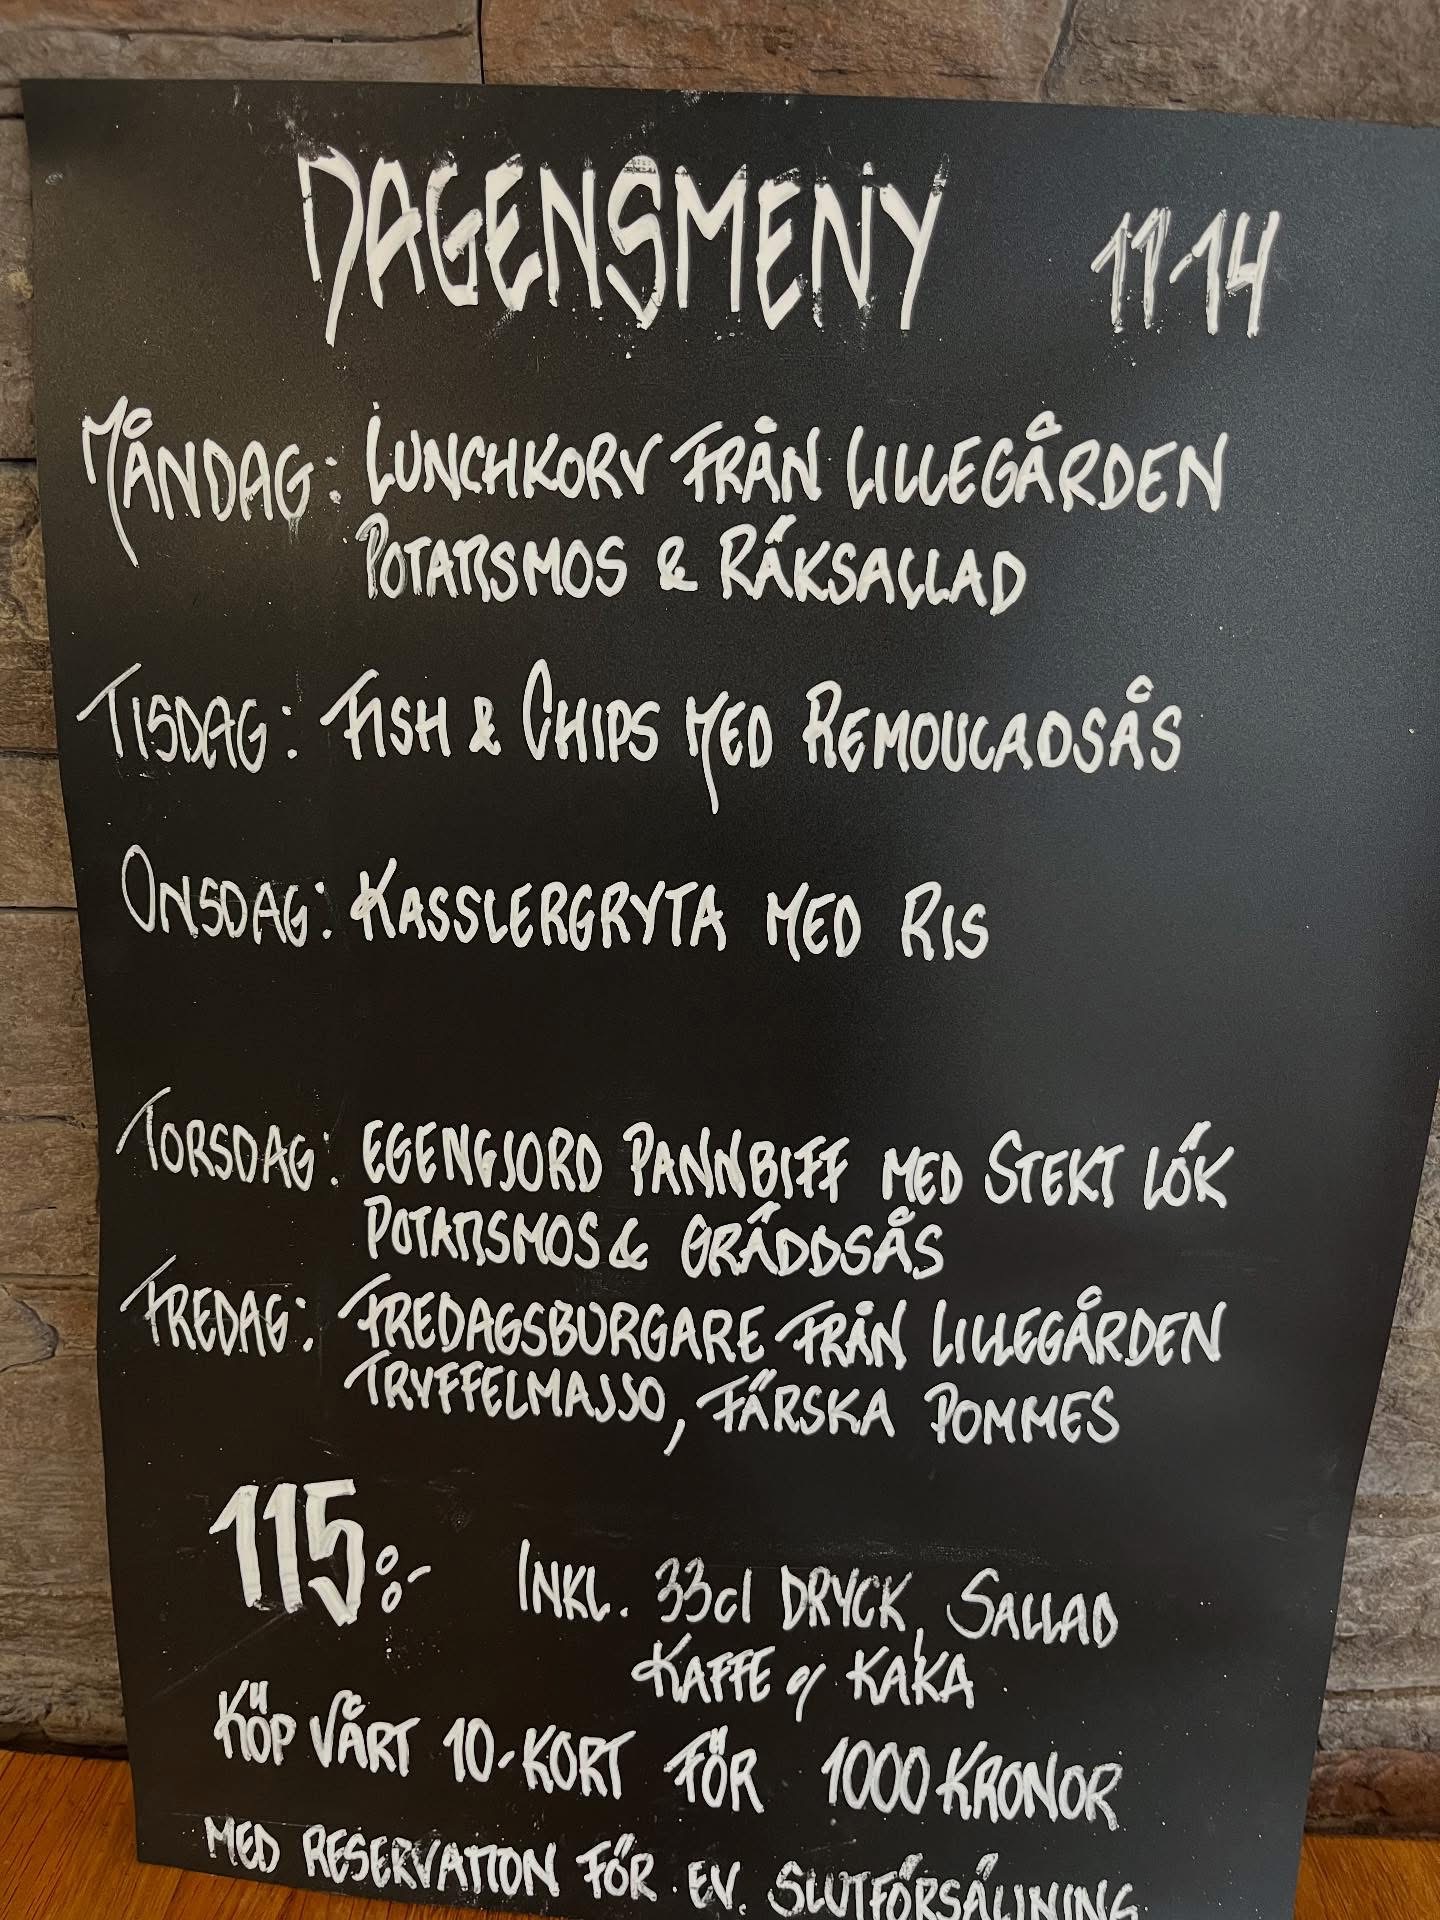 DAGENSMENY 11-14
MÅNDAG: LUNCHKORV FRÅN LILLEGÅRDEN
POTATISMOS & RÄKSALLAD
TISDAG: FISH & CHIPS MED REMOULADSÅS
ONSDAG: KASSLERGRYTA MED RIS
TORSDAG: EGENGJORD PANNBIFF MED STEKT LÖK
POTATISMOS & GRÄDDSÅS
FREDAG: FREDAGSBURGARE FRÅN LILLEGÅRDEN
TRYFFELMAJJO, FÄRSKA POMMES
115:- INKL. 33cl DRYCK, SALLAD
KAFFE & KAKA
KÖP VÅRT 10-KORT FÖR 1000 KRONOR
MED RESERVATION FÖR EV. SLUTFÖRSÄLJNING